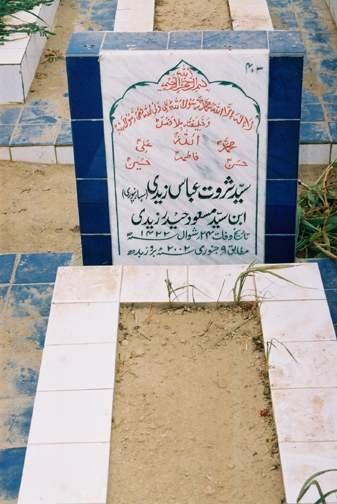 ۴۰۳
بسم اللہ الرحمن الرحیم
لا الہ الا اللہ محمد رسول اللہ علی ولی اللہ وصی رسول اللہ
و خلیفتہ بلا فصل
محمد اللہ علی
حسن فاطمہ حسین
سید ثروت عباس زیدی (سہارنپوری)
ابن سید مسعود حیدر زیدی
تاریخ وفات ۲۴ شوال ۱۴۲۲ھ
مطابق ۹ جنوری ۲۰۰۲ء بروز بدھ